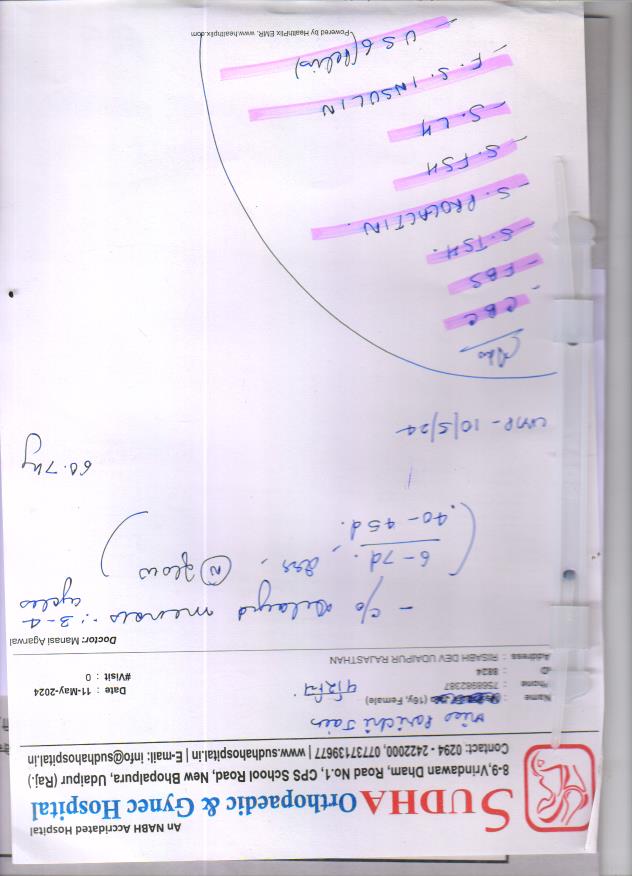 An NABH Accridated Hospital
SUDHA Orthopaedic & Gynec Hospital
8-9, Vrindawan Dham, Road No.1, CPS School Road, New Bhopalpura, Udaipur (Raj.)
Contact: 0294 - 2422000, 07737139677 | www.sudhahospital.in | E-mail: info@sudhahospital.in
Miss Parichi Jain
Name : (16y, Female)
Phone : 7568982387
ID : 8824
Address : RISABH DEV UDAIPUR RAJASTHAN
Date : 11-May-2024
#Visit : 0
Doctor: Manasi Agarwal
- c/o delayed menses - 3-4 cycles
6-7d. , (N) flow
40-45d.
60.7kg
LMP - 10/5/24
Adv
- CBC
- FBS
- S. TSH.
- S. PROLACTIN.
- S. FSH
- S. LH
- F. S. INSULIN
- USG (Pelvis)
Powered by HealthPlix EMR. www.healthplix.com